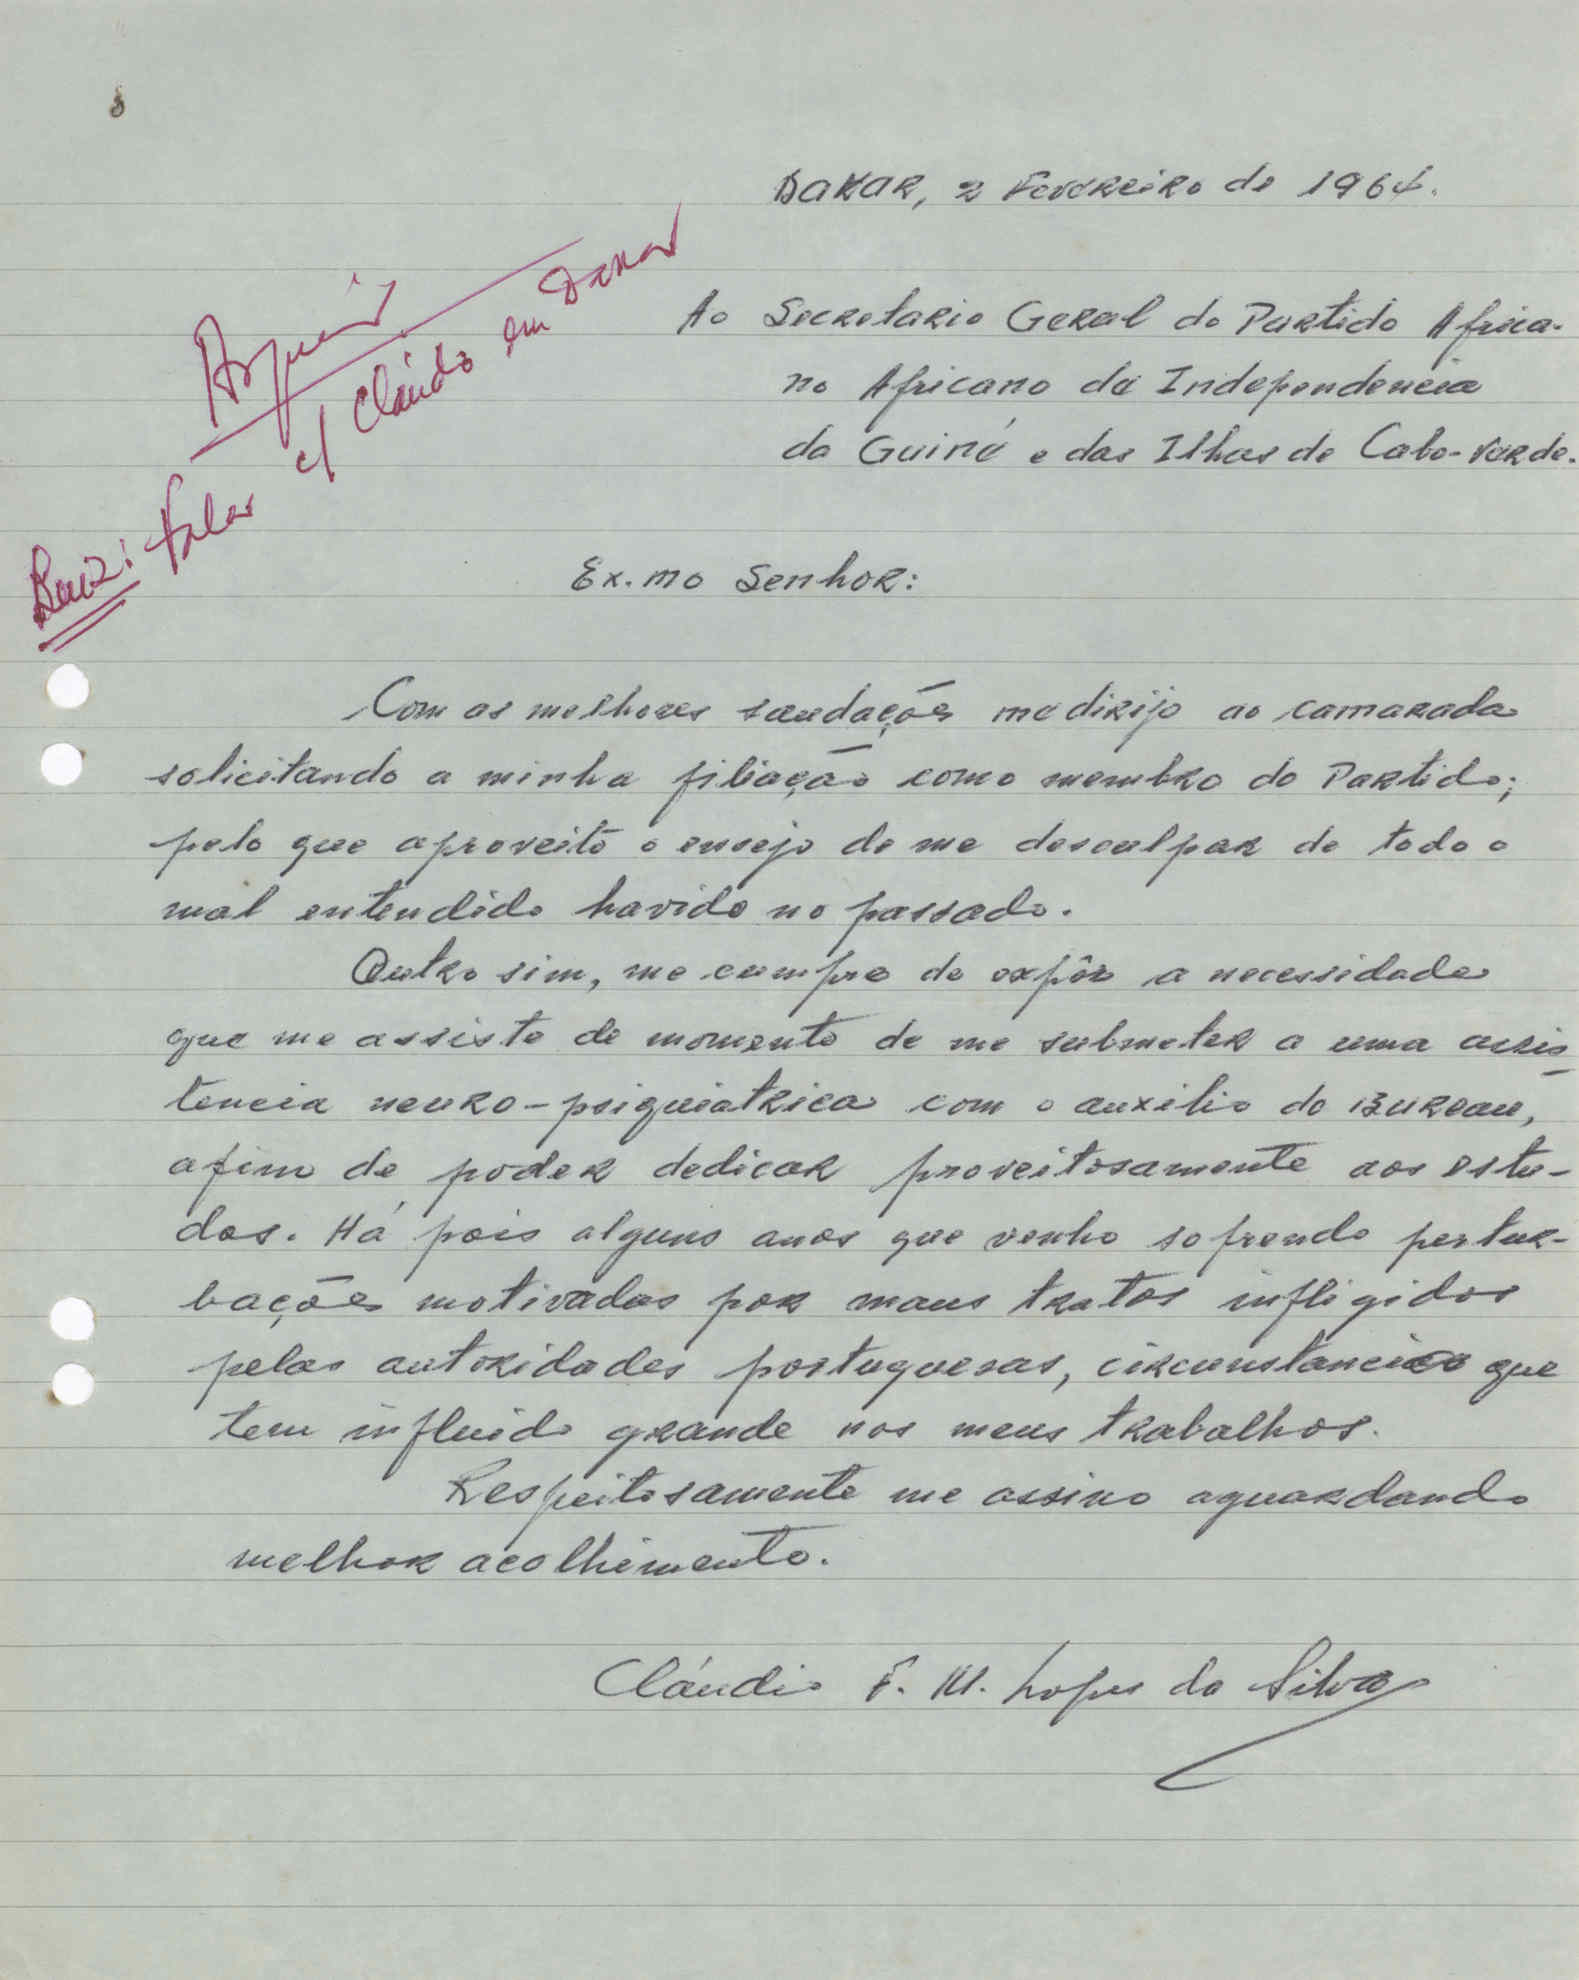 Dakar, 2 Fevereiro de 1964.
Ao Secretario Geral do Partido Africa-
no Africano da Independencia
da Guiné e das Ilhas de Cabo-Verde.
Luiz: Falar c/ Cláudio em Dakar
Ex.mo Senhor:
Com as melhores saudações me dirijo ao camarada
solicitando a minha filiação como membro do Partido;
pelo que aproveito o ensejo de me desculpar de todo o
mal entendido havido no passado.
Outro sim, me cumpre de expôr a necessidade
que me assiste de momento de me submeter a uma assis
tencia neuro-psiquiatrica com o auxilio do Bureau,
afim de poder dedicar proveitosamente aos estu-
dos. Há pois alguns anos que venho sofrendo pertur-
bações motivadas por maus tratos infligidos
pelas autoridades portuguesas, circunstancias que
tem influido grande nos meus trabalhos.
Respeitosamente me assino aguardando
melhor acolhimento.
Cláudio F. M. Lopes da Silva